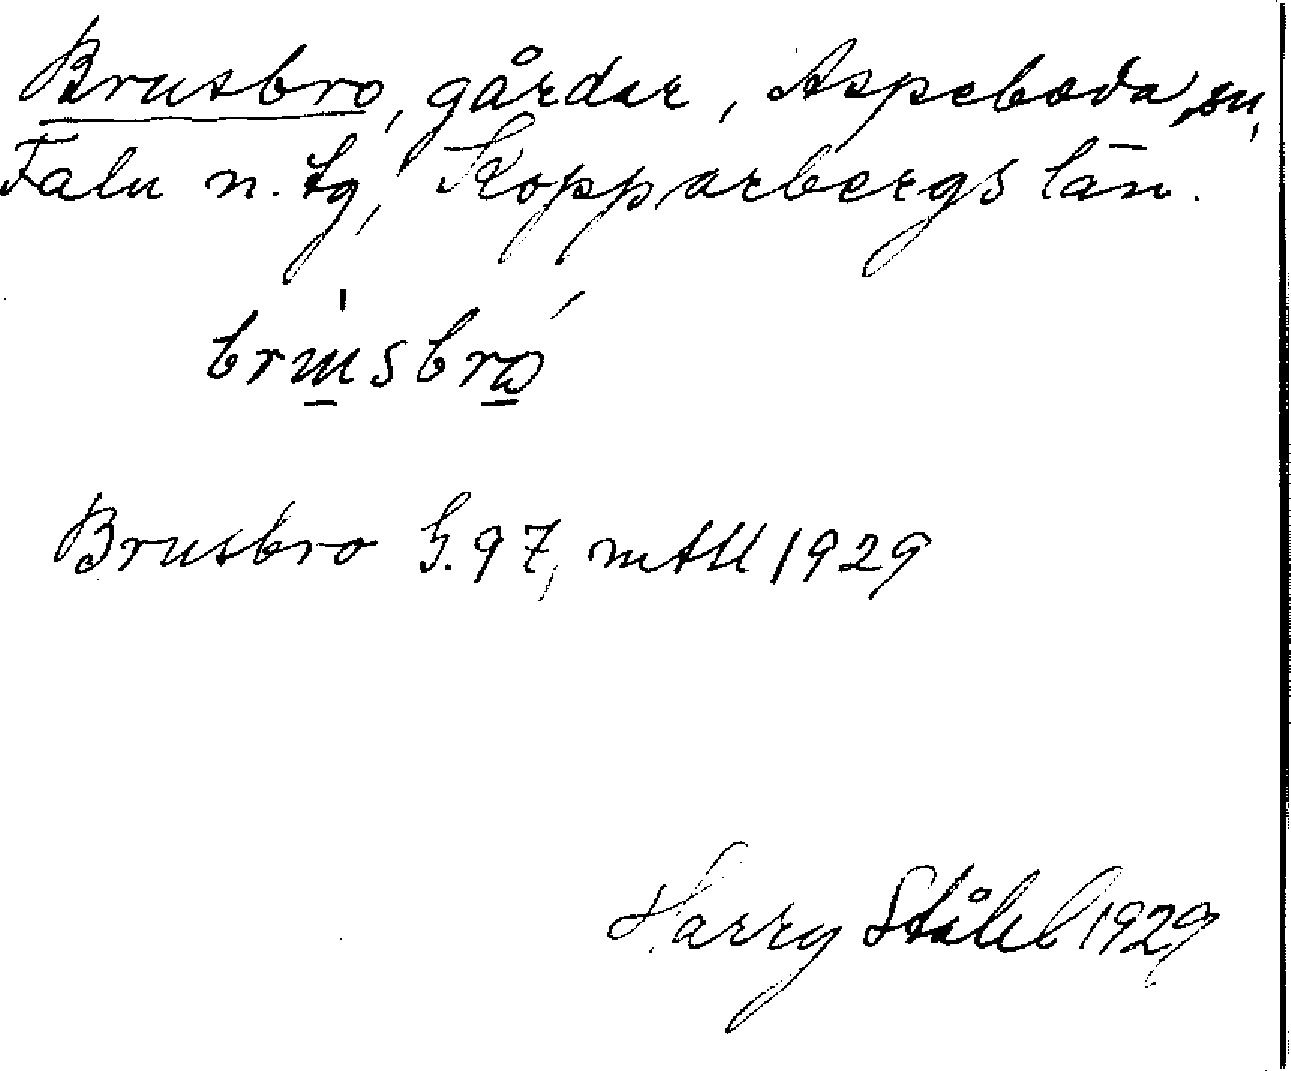 Brusbro, gårdar, Aspeboda sn,
Falu n. tg, Kopparbergs län.
Brusbro G. 97, mtll 1929
Harry Ståhl 1929